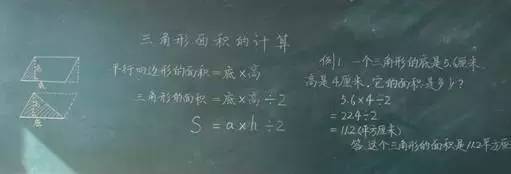 三角形面积的计算
平行四边形的面积=底×高
三角形的面积=底×高÷2
S=a×h÷2
例1.一个三角形的底是5.6厘米,
高是4厘米.它的面积是多少?
5.6×4÷2
=22.4÷2
=11.2(平方厘米)
答.这个三角形的面积是11.2平方厘